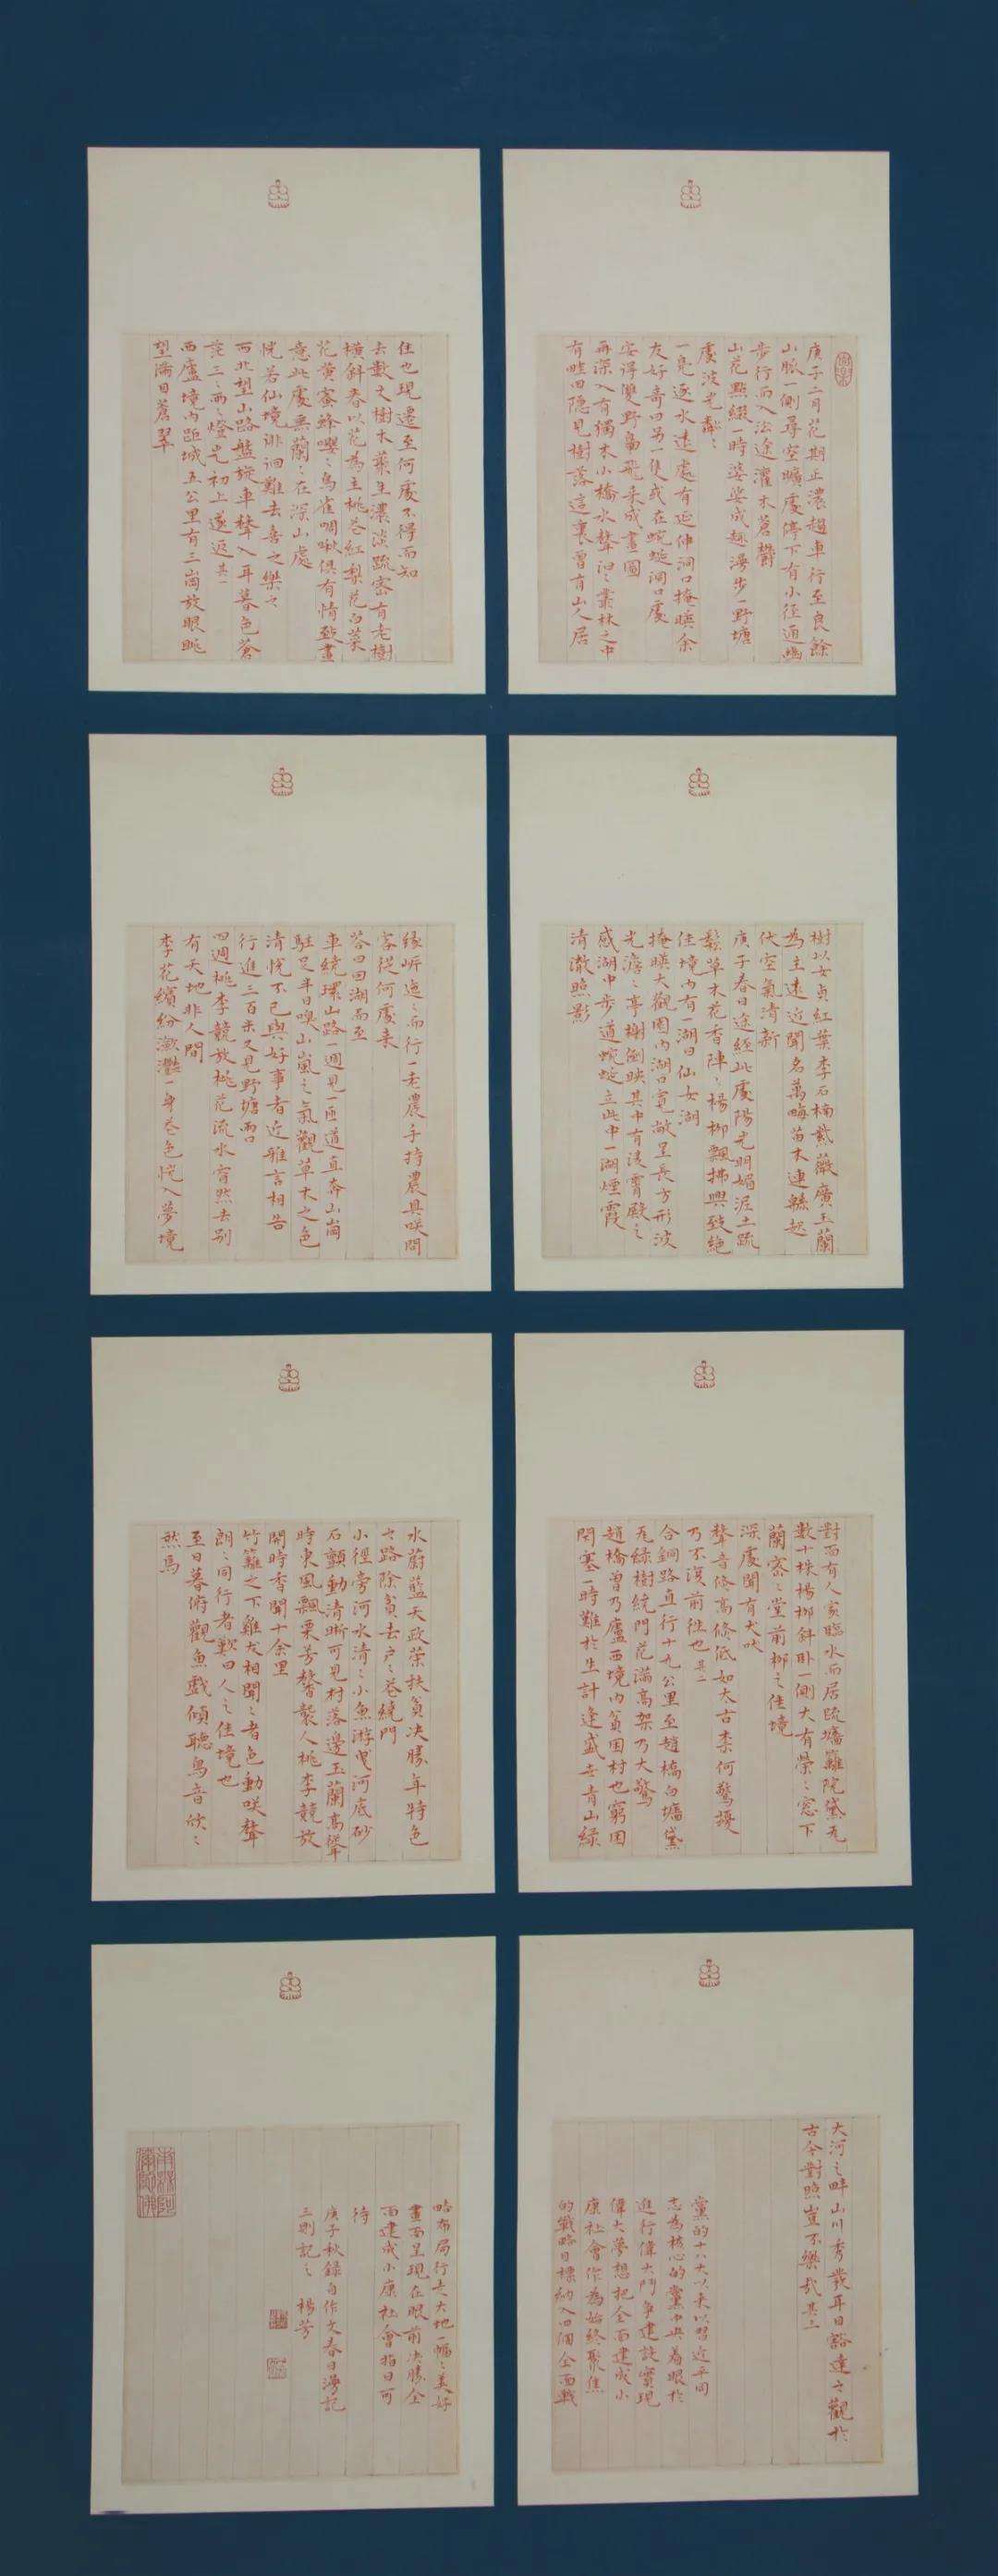 庚子二月花期正濃趨車行至良餘
山脈一側尋空曠處停下有小徑通幽
步行而入沿途灌木蒼鬱
山花點綴一時婆娑成趣漫步一野塘
處波光粼〻
一凫逐水遠處有延伸洞口掩暎余
友好奇曰另一隻或在蜿蜒洞口處
安得雙野凫飛来成畫圖
再深入有獨木小橋水聲汩〻叢林之中
有畦田隐見樹落這裏曾有山人居
住也現遷至何處不得而知
去數丈樹木叢生濃淡疏密有老樹
橫斜春以花為主桃花紅梨花白菜
花黄蜜蜂嚶〻鳥雀啁啾俱有情致畫
意此處無蘭〻在深山處
恍若仙境徘徊難去喜之樂之
西北望山路盤旋車聲入耳暮色蒼
茫三〻兩〻燈光初上遂返其一
西廬境内距城五公里有三崗放眼眺
望滿目蒼翠
樹以女貞紅葉李石楠紫薇廣玉蘭
為主遠近聞名萬畮苗木連緜起
伏空氣清新
庚子春日途經此處陽光明媚泥土疏
鬆草木花香陣〻楊柳飄拂興致絶
佳境内有一湖曰仙女湖
掩暎大觀園内湖口寬敞呈長方形波
光澹〻亭榭倒映其中有淩霄殿之
感湖中步道蜿蜒立此中一湖煙霞
清澈照影
緣岍迤〻而行一老農手持農具咲問
客從何處来
答曰回湖而至
車繞環山路一週見一匝道直奔山崗
駐足半日嗅山嵐之氣觀草木之色
清恱不已與好事者近雅言相告
行進三百米又見野塘兩口
四週桃李競放桃花流水窅然去别
有天地非人間
李花繽紛瀲灩一身花色恍入夢境
對面有人家臨水而居疏墻籬院黛瓦
數十株楊柳斜卧一側大有榮〻窓下
蘭密〻堂前柳之佳境
深處聞有犬吠
聲音倏高倏低如太古来何驚擾
乃不須前往也其二
合銅路直行十九公里至趙橋白墻黛
瓦緑樹繞門花滿高架乃大驚
趙橋曽乃廬西境内貧困村也窮困
閉塞一時難於生計逢盛世青山緑
水蔚藍天政策扶貧决勝年特色
之路除貧去户〻花繞門
小徑旁河水清〻小魚游曳河底砂
石顫動清晰可見村落邊玉蘭高聳
時東風飄栗芳馨襲人桃李競放
開時香聞十余里
竹籬之下雞犬相聞〻者色動咲聲
朗〻同行者歎曰人之佳境也
至日暮俯觀魚戲傾聽鳥音欣〻
然焉
大河之畔山川秀歲年日豁達之觀於
古今對照豈不樂哉其三
黨的十八大以来以習近平同
志為核心的黨中央着眼於
進行偉大鬥争建設實現
偉大夢想把全面建成小
康社會作為始終聚焦
的戰略目標納入四個全面戰
略布局行走大地一幅〻美好
畫面呈現在眼前决勝全
面建成小康社會指日可
待
庚子秋録自作文春日漫記
三則記之 楊芳
南無阿彌陀佛